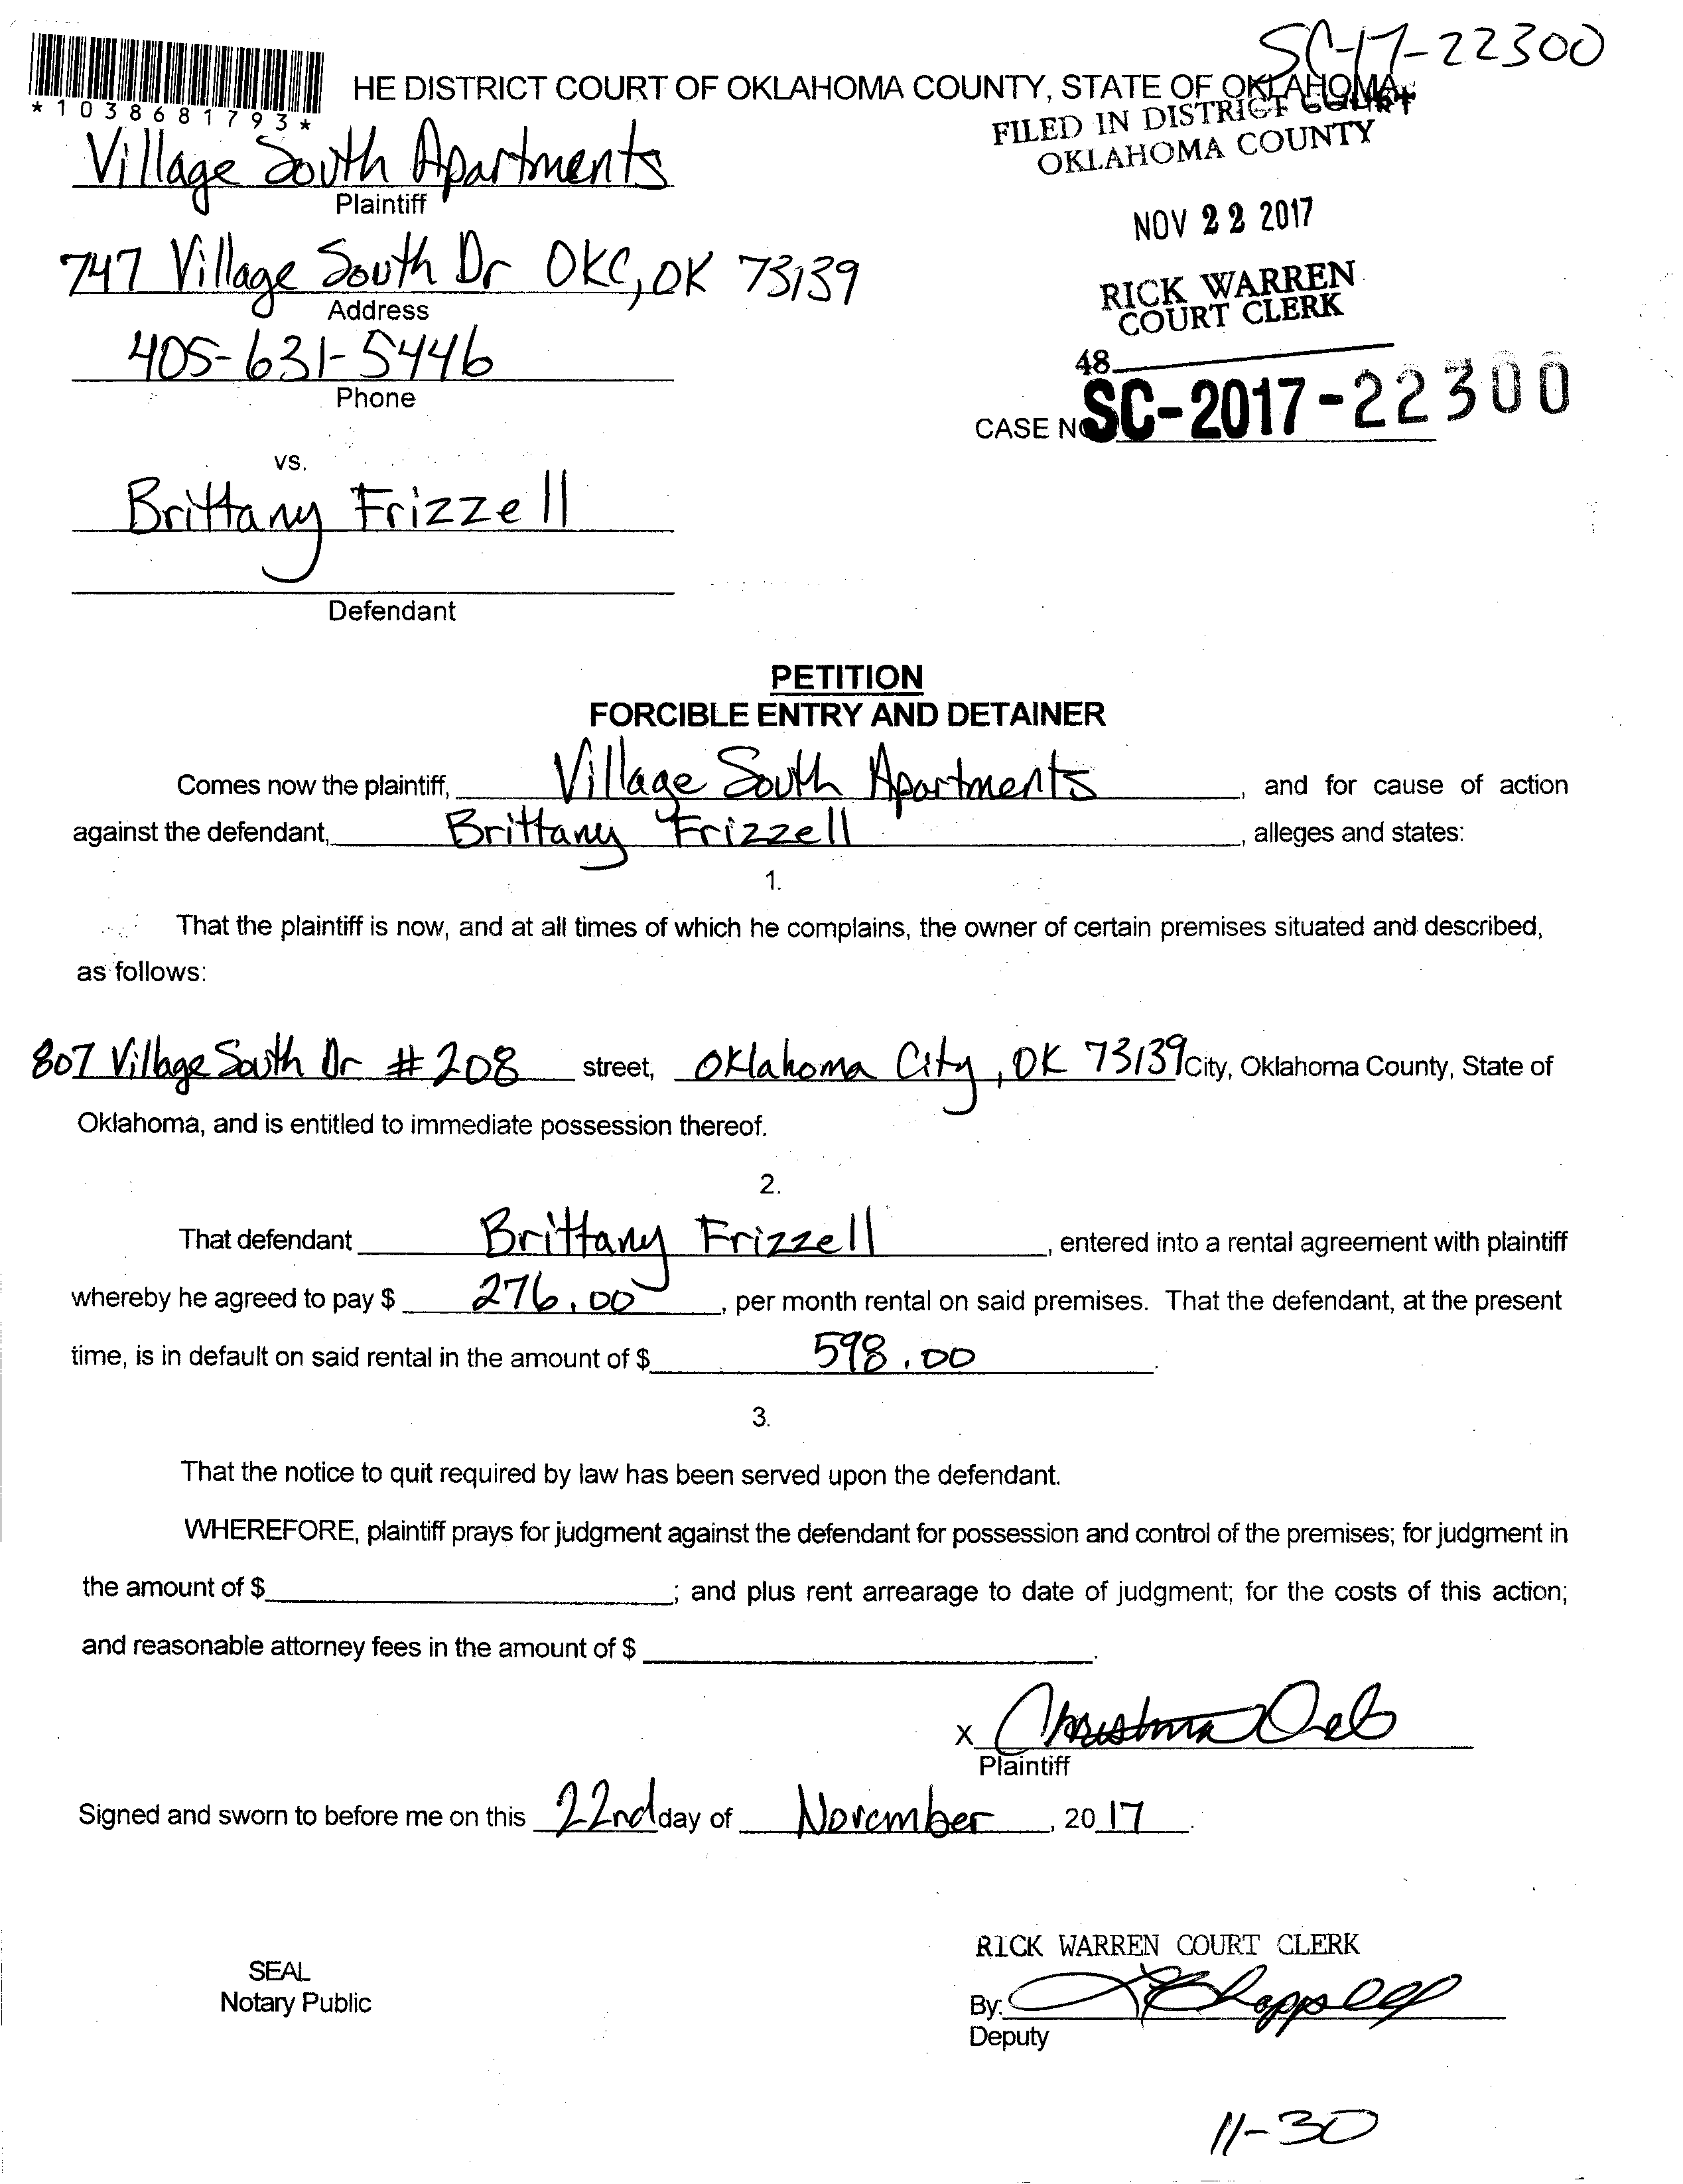 SC-17-22300
*1038681793*
HE DISTRICT COURT OF OKLAHOMA COUNTY, STATE OF OKLAHOMA
FILED IN DISTRICT COURT
OKLAHOMA COUNTY
Village South Apartments
Plaintiff
NOV 22 2017
747 Village South Dr OKC, OK 73139
Address
RICK WARREN
COURT CLERK
405-631-5446
Phone
48
CASE NO SC-2017-22300
vs.
Brittany Frizzell
Defendant
PETITION
FORCIBLE ENTRY AND DETAINER
Comes now the plaintiff, Village South Apartments, and for cause of action
against the defendant, Brittany Frizzell, alleges and states:
1.
That the plaintiff is now, and at all times of which he complains, the owner of certain premises situated and described,
as follows:
807 Village South Dr #208 street, Oklahoma City, OK 73139 City, Oklahoma County, State of
Oklahoma, and is entitled to immediate possession thereof.
2.
That defendant Brittany Frizzell, entered into a rental agreement with plaintiff
whereby he agreed to pay $ 276.00, per month rental on said premises. That the defendant, at the present
time, is in default on said rental in the amount of $ 598.00.
3.
That the notice to quit required by law has been served upon the defendant.
WHEREFORE, plaintiff prays for judgment against the defendant for possession and control of the premises; for judgment in
the amount of $ ; and plus rent arrearage to date of judgment; for the costs of this action;
and reasonable attorney fees in the amount of $ .
x
Plaintiff
Signed and sworn to before me on this 22nd day of November, 2017.
RICK WARREN COURT CLERK
SEAL
Notary Public
By:
Deputy
11-30